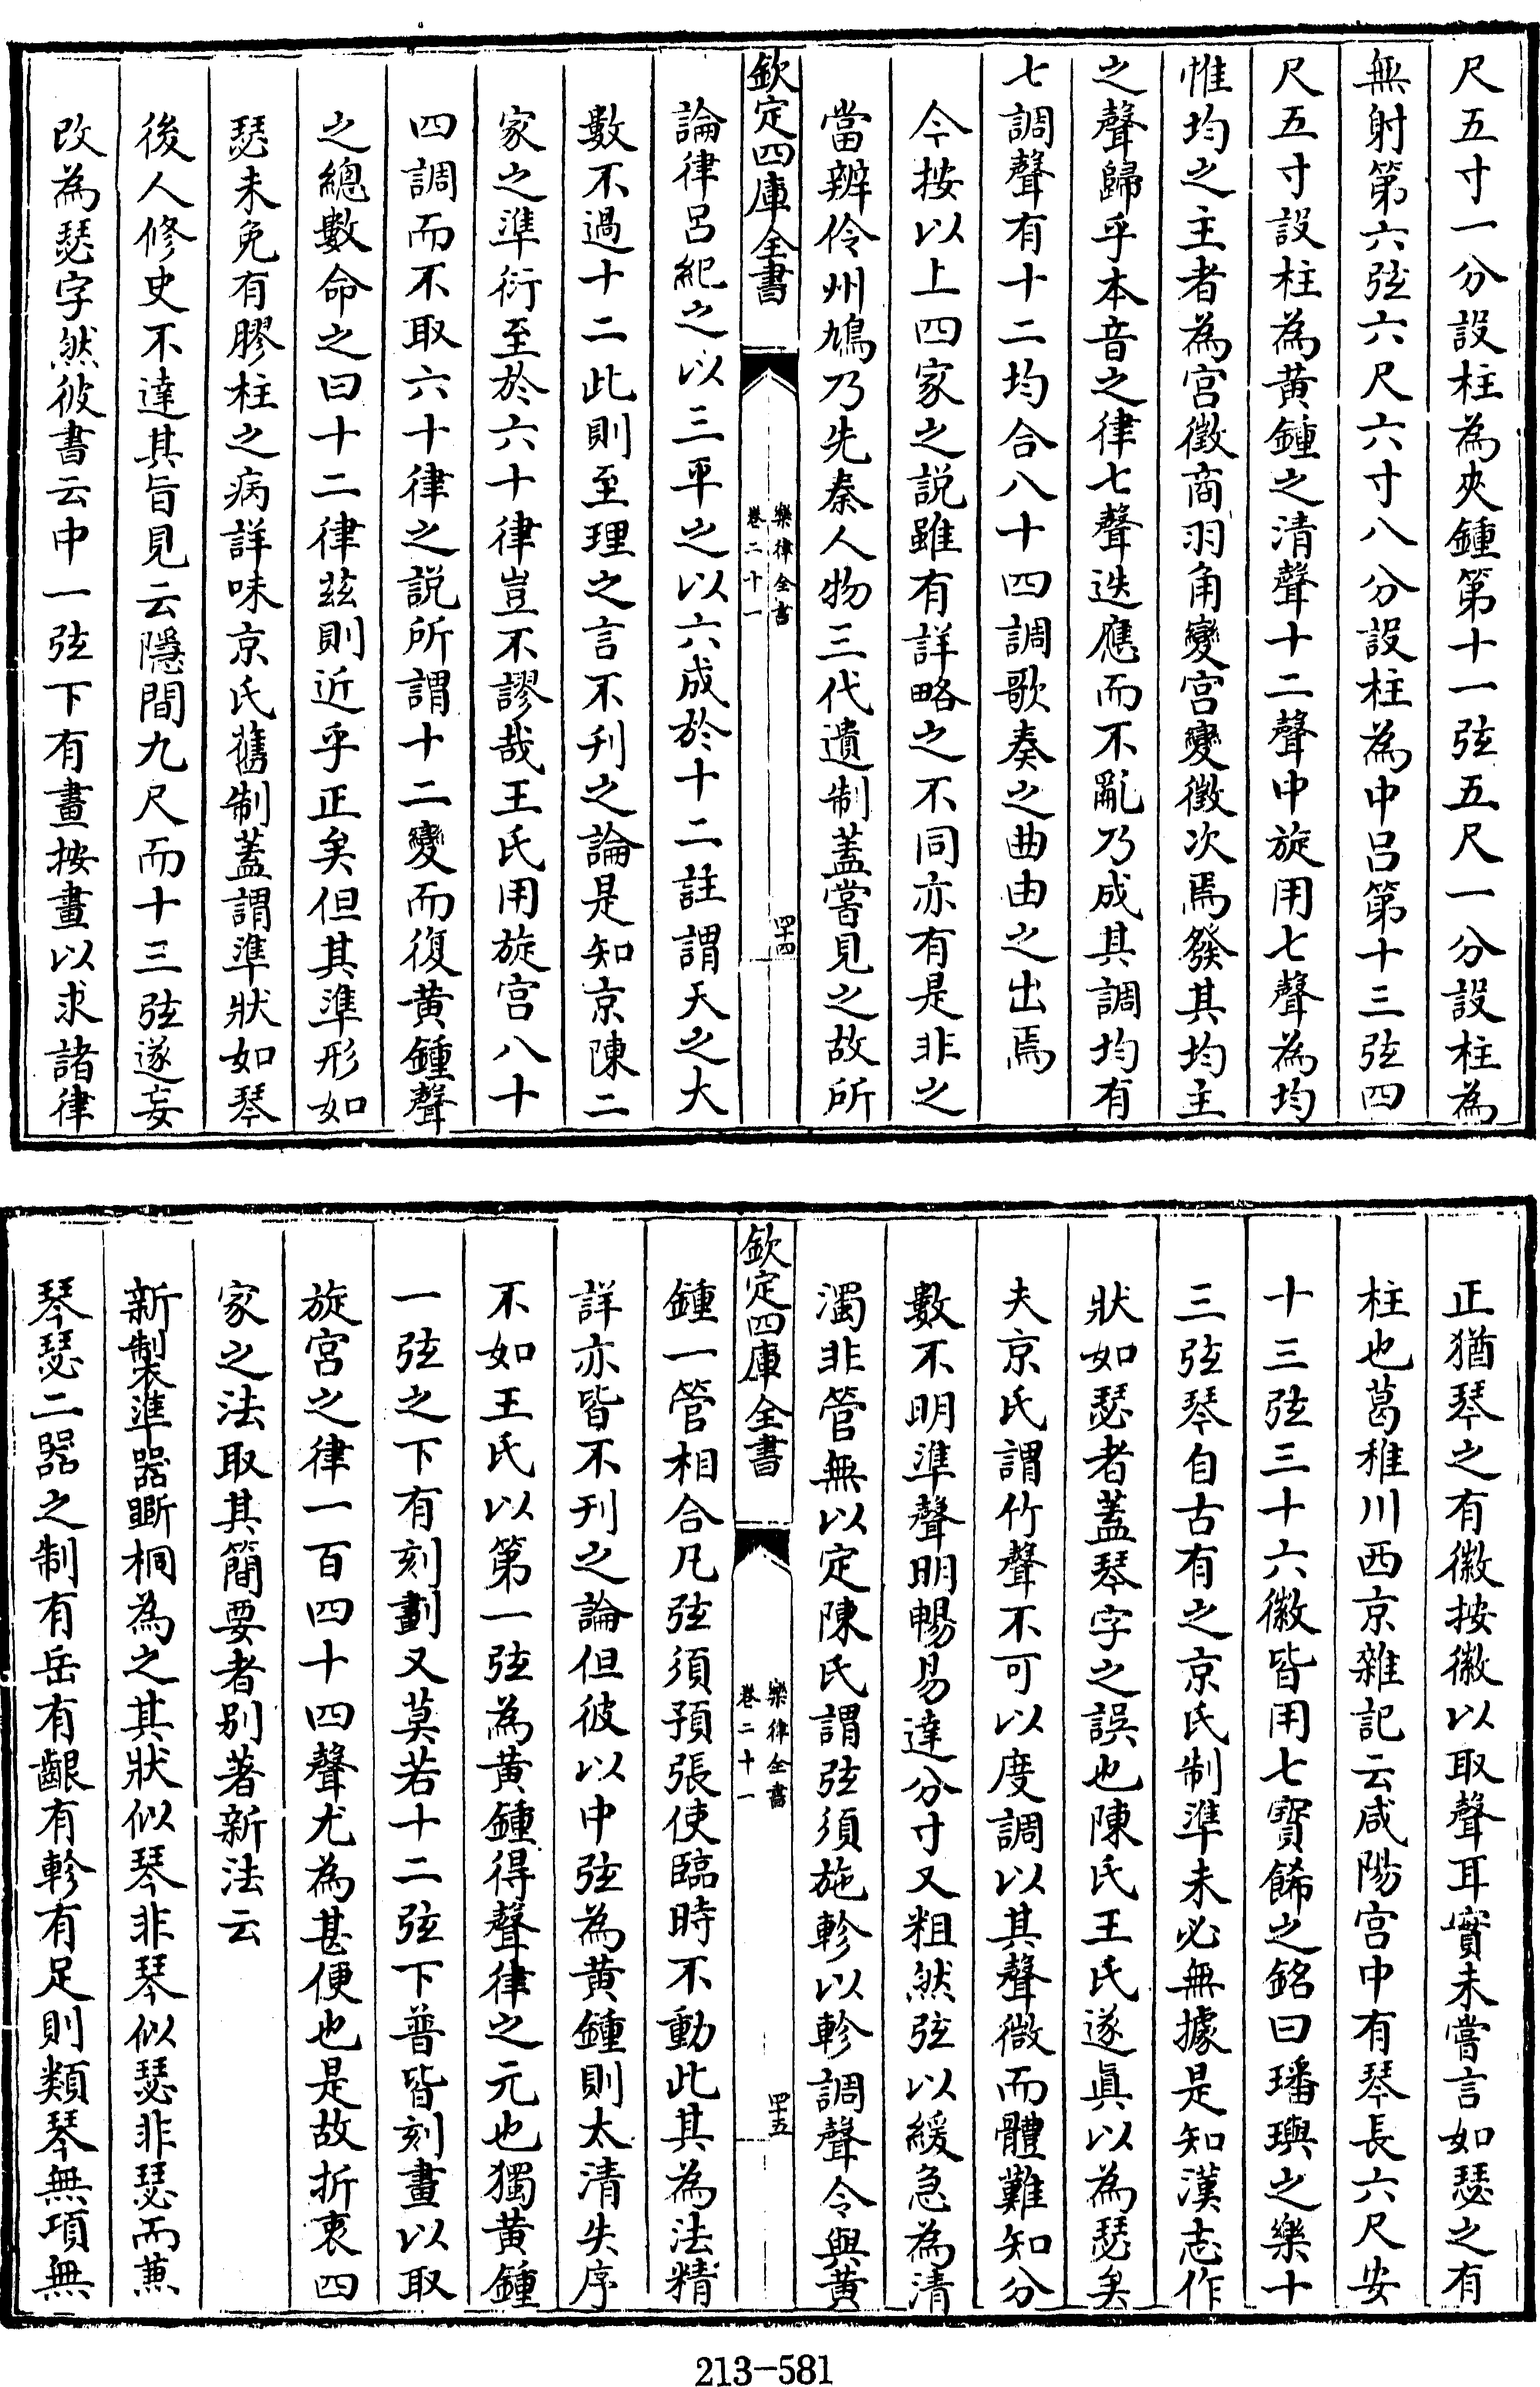 尺五寸一分設柱為夾鍾第十一弦五尺一分設柱為
無射第六弦六尺六寸八分設柱為中呂第十三弦四
尺五寸設柱為黃鍾之清聲十二聲中旋用七聲為均
惟均之主者為宮徵商羽角變宮變徵次焉發其均主
之聲歸乎本音之律七聲迭應而不亂乃成其調均有
七調聲有十二均合八十四調歌奏之曲由之出焉
今按以上四家之說雖有詳略之不同亦有是非之
當辨伶州鳩乃先秦人物三代遺制蓋嘗見之故所
欽定四庫全書
樂律全書
卷二十一
四十四
論律呂紀之以三平之以六成於十二註謂天之大
數不過十二此則至理之言不刋之論是知京陳二
家之準衍至於六十律豈不謬哉王氏用旋宮八十
四調而不取六十律之說所謂十二變而復黃鍾聲
之總數命之曰十二律茲則近乎正矣但其準形如
瑟未免有膠柱之病詳味京氏舊制蓋謂準狀如琴
後人修史不達其旨見云隱間九尺而十三弦遂妄
改為瑟字然彼書云中一弦下有畫按畫以求諸律
正猶琴之有徽按徽以取聲耳實未嘗言如瑟之有
柱也葛稚川西京雜記云咸陽宮中有琴長六尺安
十三弦三十六徽皆用七寶餙之銘曰璠璵之樂十
三弦琴自古有之京氏制準未必無據是知漢志作
狀如瑟者蓋琴字之誤也陳氏王氏遂眞以為瑟矣
夫京氏謂竹聲不可以度調以其聲微而體難知分
數不明準聲明暢易達分寸又粗然弦以緩急為清
濁非管無以定陳氏謂弦須施軫以軫調聲令與黃
欽定四庫全書
樂律全書
卷二十一
四十五
鍾一管相合凡弦須預張使臨時不動此其為法精
詳亦皆不刋之論但彼以中弦為黃鍾則太清失序
不如王氏以第一弦為黃鍾得聲律之元也獨黃鍾
一弦之下有刻劃又莫若十二弦下普皆刻畫以取
旋宮之律一百四十四聲尤為甚便也是故折衷四
家之法取其簡要者別著新法云
新製準器斲桐為之其狀似琴非琴似瑟非瑟而兼
琴瑟二器之制有岳有齦有軫有足則類琴無項無
213-581